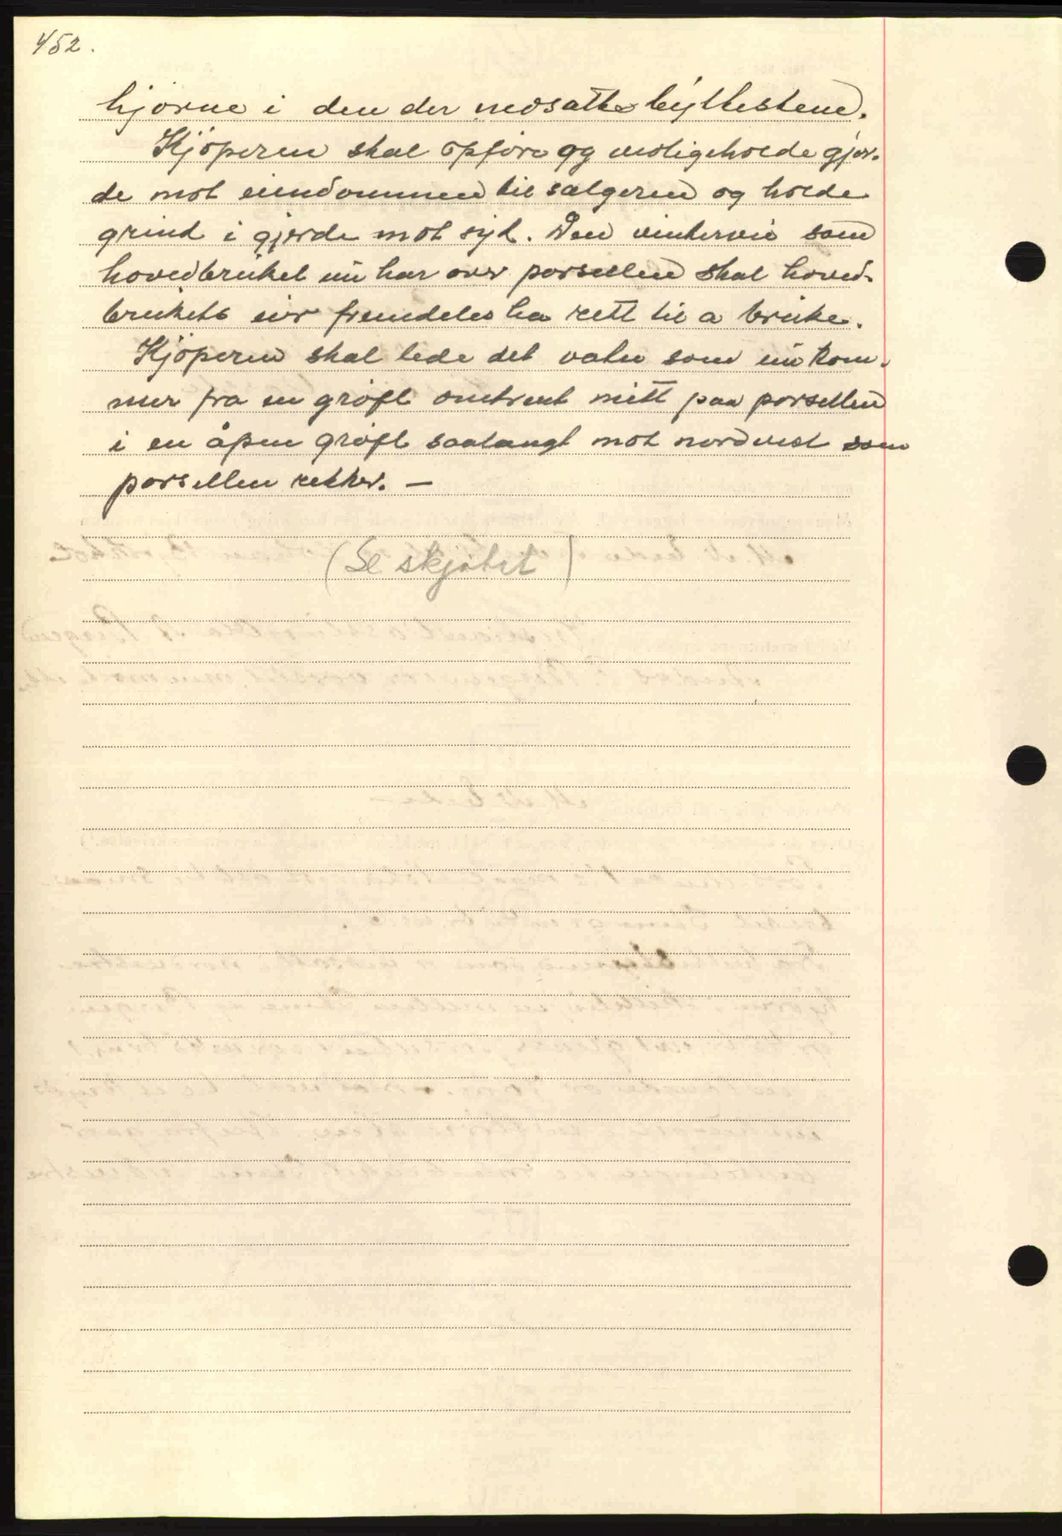 452.
hjørne i den der nedsatte byttestene.
Kjøperen skal opføre og vedligeholde gjer-
de mot eiendommen til sælgeren og holde
grind i gjerde mot syd. Den vintervei som
hovedbruket nu har over porsellen skal hoved-
brukets eier fremdeles ha rett til a bruke.
Kjøperen skal lede det vatn som nu kom-
mer fra en grøft omtrent mitt paa porsellen
i en åpen grøft saalangt mot nordvest som
porsellen rekker. —
(Se skjøtet)